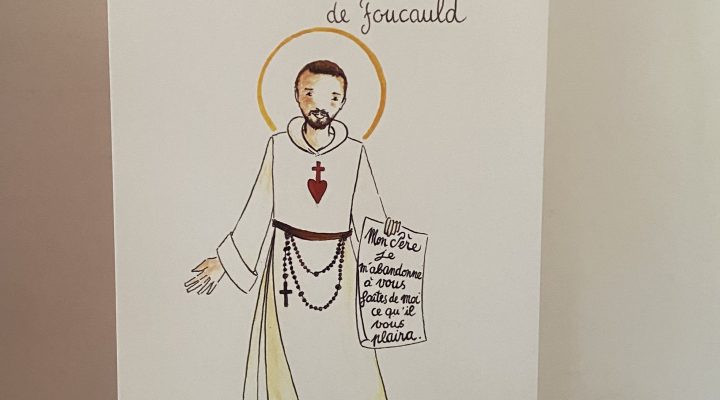 de Foucauld
Mon Père
Je
m'abandonne
à vous
faites de moi
ce qu'il
vous
plaira.